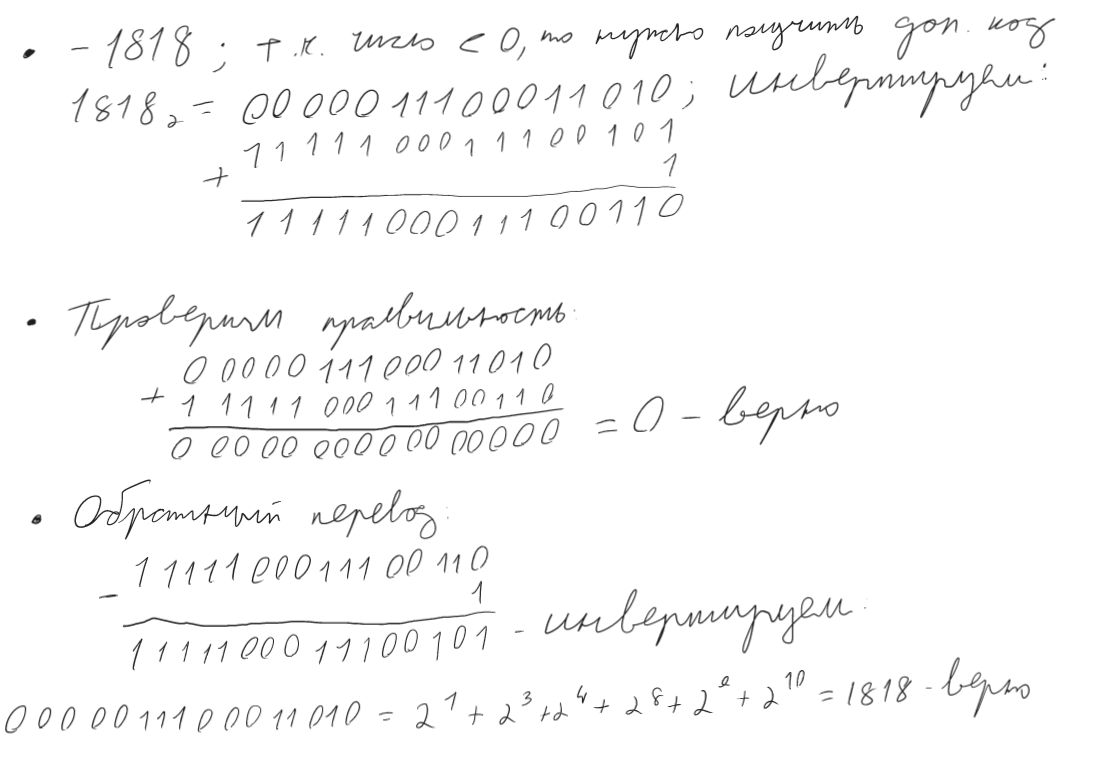 • -1818; т.к. число < 0, то нужно получить доп. код
1818₂ = 0000011100011010; инвертируем:
1111100011100101
+ 1
1111100011100110
• Проверим правильность:
0000011100011010
+ 1111100011100110
0000000000000000 = 0 - верно
• Обратный перевод:
1111100011100110
- 1
1111100011100101 - инвертируем:
0000011100011010 = 2¹ + 2³ + 2⁴ + 2⁸ + 2⁹ + 2¹⁰ = 1818 - верно